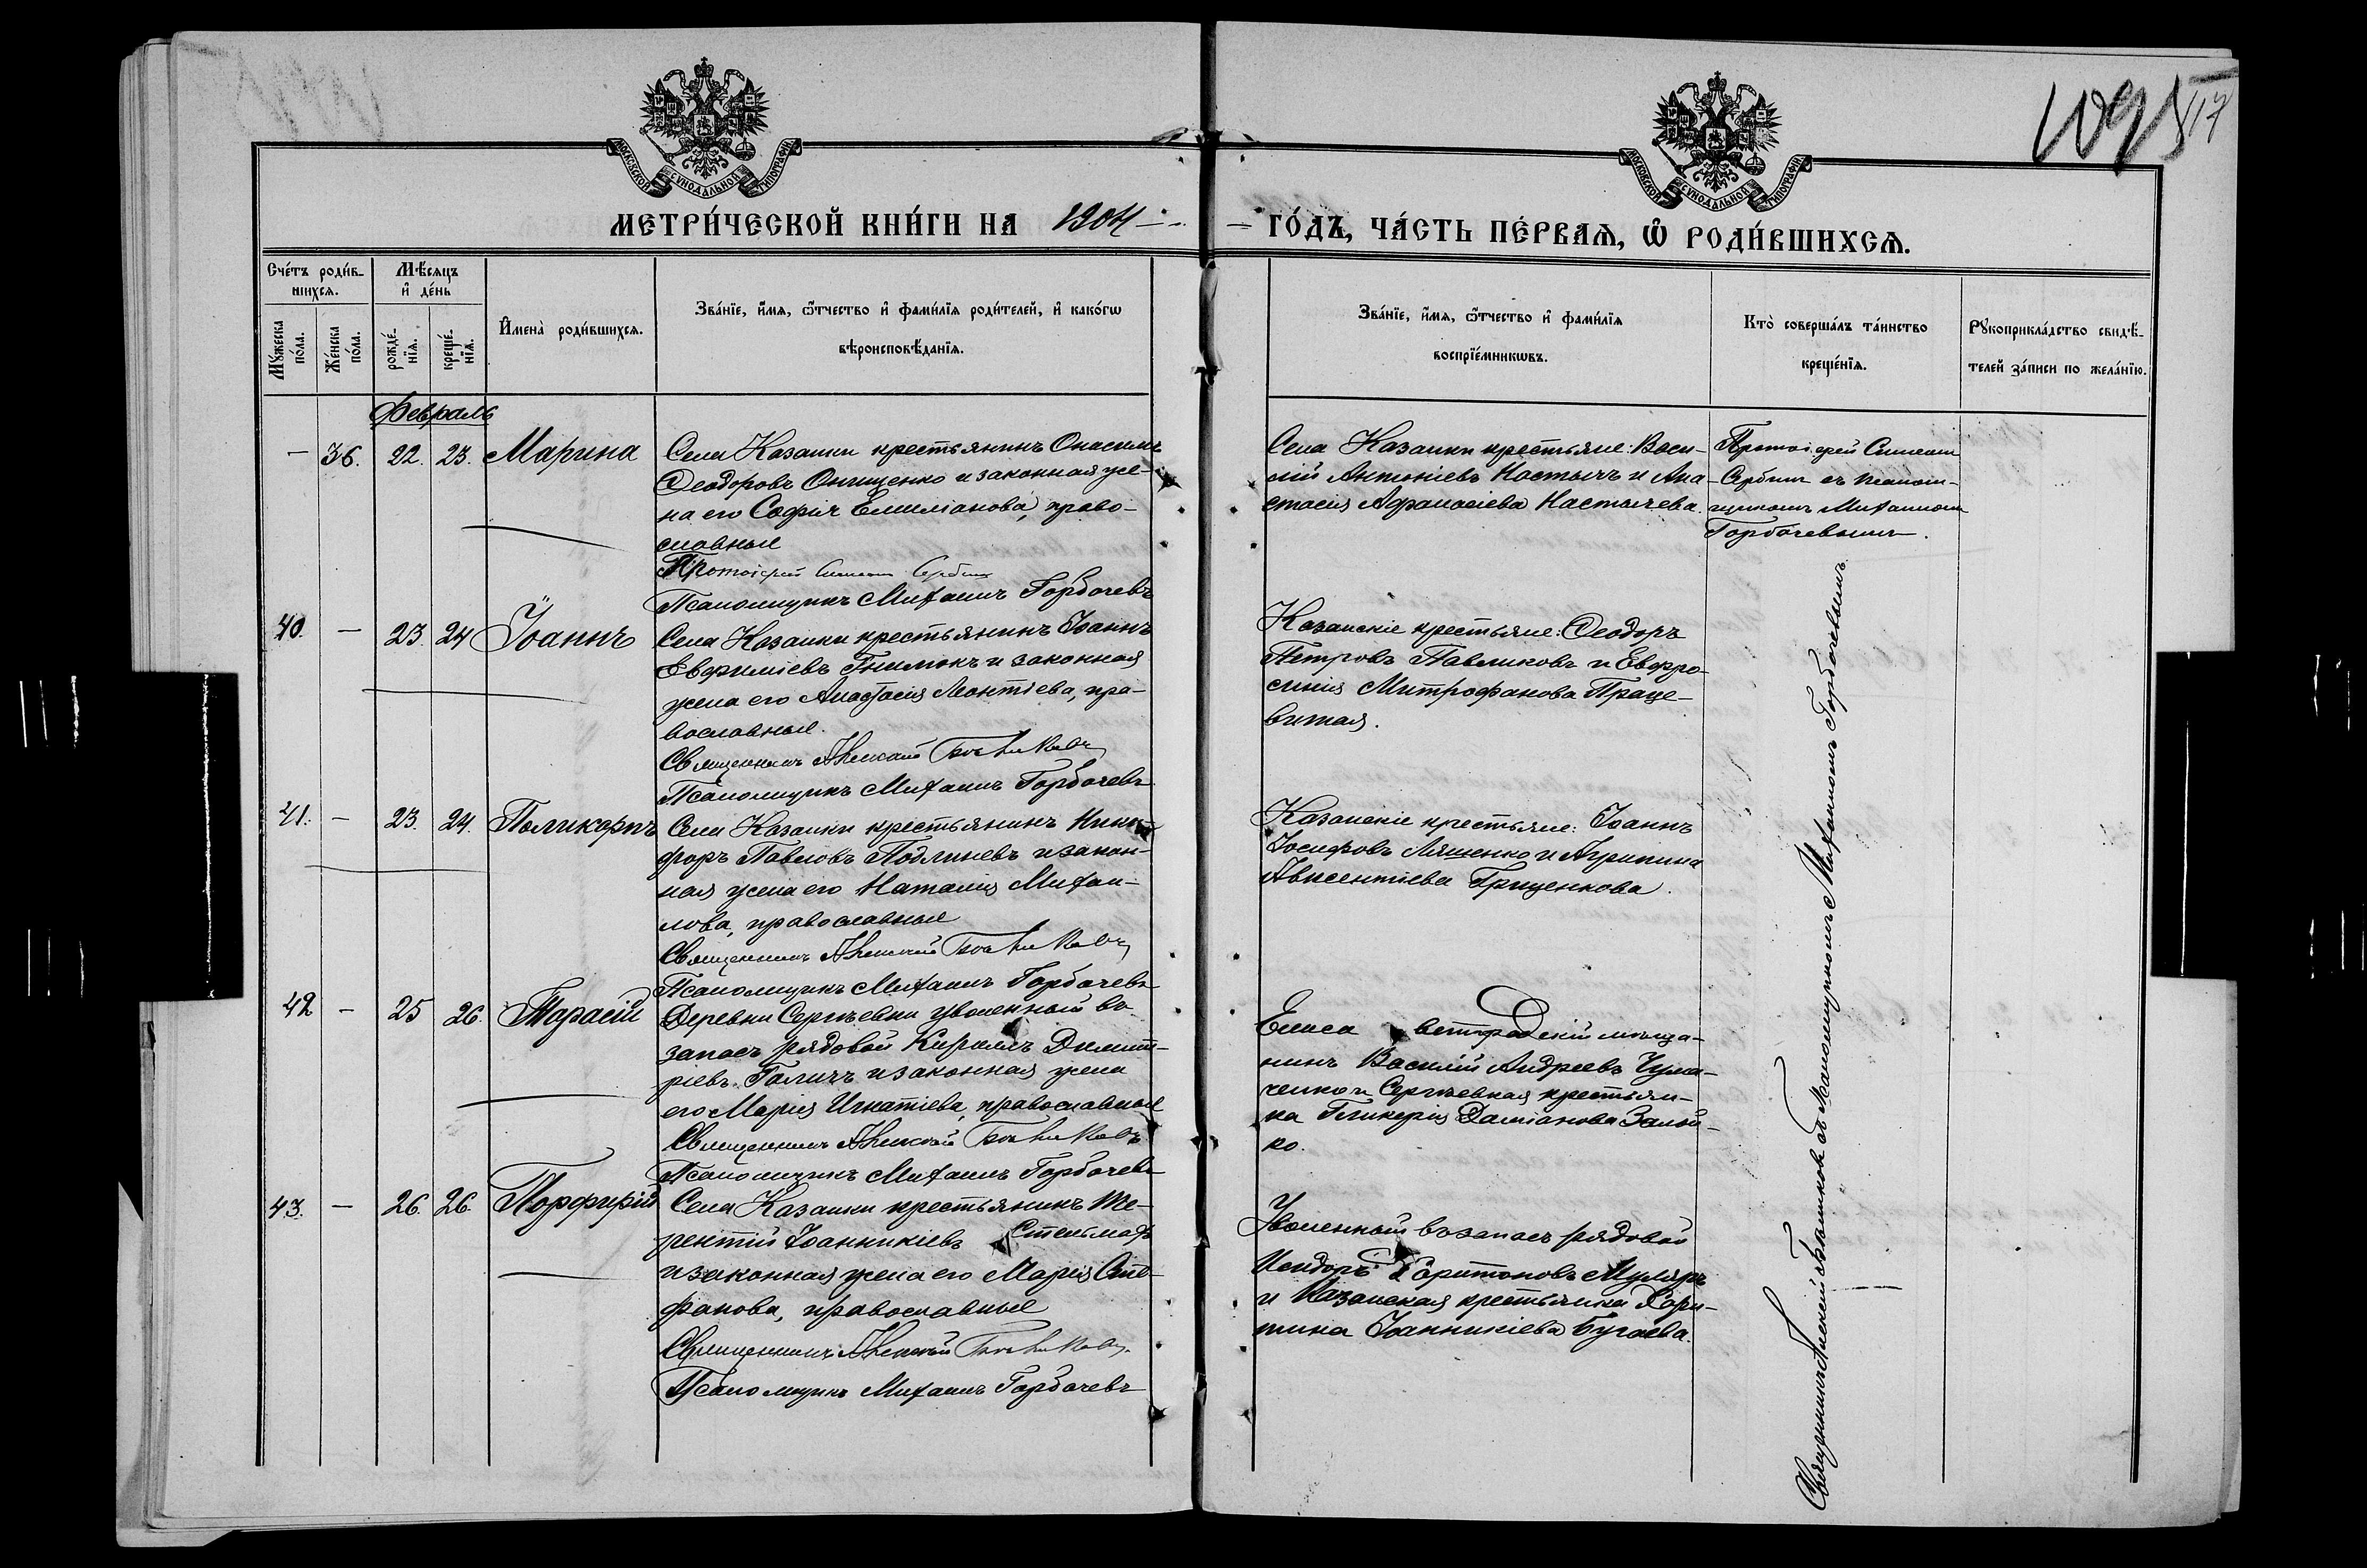 1095
117
МОСКОВСКОЙ СѴНОДАЛЬНОЙ ТИПОГРАФІИ
МОСКОВСКОЙ СѴНОДАЛЬНОЙ ТИПОГРАФІИ
МЕТРИ́ЧЕСКОЙ КНИ́ГИ НА 1904 ГО́ДЪ, ЧА́СТЬ ПЕ́РВАѦ, Ѡ҆ РОДИ́ВШИХСѦ.
Сче́тъ роди́в-
шихсѧ.
Мꙋ́жеска
по́ла.
Же́нска
по́ла.
Мѣ́сѧцъ
и҆ де́нь
рожде́-
нїѧ.
креще́-
нїѧ.
И҆мена̀ роди́вшихсѧ.
Зва́нїе, и҆́мѧ, ѻ҆́тчество и҆ фами́лїѧ роди́телей, и҆ како́гѡ
вѣроисповѣ́данїѧ.
Зва́нїе, и҆́мѧ, ѻ҆́тчество и҆ фами́лїѧ
воспрїе́мникѡвъ.
Кто̀ соверша́лъ та́инство
креще́нїѧ.
Рꙋкоприкла́дство свидѣ́-
телей за́писи по жела́нїю.
Февраль
— 36. 22. 23. Марина
Села Казанки крестьянинъ Онисимъ
Ѳеодоровъ Онищенко и законная же-
на его Софія Емиліанова, право-
славные
Протоіерей Симеонъ Сербинъ
Псаломщикъ Михаилъ Горбачевъ
Села Казанки крестьяне: Васи-
лій Антоніевъ Настычъ и Ана-
стасія Аѳанасіева Настычева.
Протоіерей Симеонъ
Сербинъ съ псалом-
щикомъ Михаиломъ
Горбачевымъ.
40. — 23. 24 Іоаннъ
Села Казанки крестьянинъ Іоаннъ
Евфиміевъ Гнилюкъ и законная
жена его Анастасія Леонтіева, пра-
вославные.
Священникъ Алексій
Псаломщикъ Михаилъ Горбачевъ
Казанскіе крестьяне: Ѳеодоръ
Петровъ Павликовъ и Евфро-
синія Митрофанова Праце-
витая.
41. — 23. 24. Поликарпъ
Села Казанки крестьянинъ Ники-
форъ Павловъ Подлиневъ и закон-
ная жена его Наталія Михаи-
лова, православные
Священникъ Алексій
Псаломщикъ Михаилъ Горбачевъ
Казанскіе крестьяне: Іоаннъ
Іосифовъ Ляшенко и Агрипина
Авксентіева Гриценкова.
42 — 25 26. Тарасій
Деревни Сергѣевки уволенный въ
запасъ рядовой Кириллъ Димит-
ріевъ Галичъ и законная жена
его Марія Игнатіева, православные
Священникъ Алексій
Псаломщикъ Михаилъ Горбачевъ
Елисаветградскій мѣща-
нинъ Василій Андреевъ Чума-
ченко и Сергѣевская крестьян-
ка Гликерія Даміанова Залой-
ко.
43. — 26. 26. Порфирій
Села Казанки крестьянинъ Те-
рентій Іоанникіевъ Стельмахъ
и законная жена его Марія Сте-
фанова, православные
Священникъ Алексій
Псаломщикъ Михаилъ Горбачевъ
Уволенный въ запасъ рядовой
Исидоръ Харитоновъ Муляръ
и Казанская крестьянка Хари-
тина Іоанникіева Бугаева.
Священникъ Алексій съ псаломщикомъ Михаиломъ Горбачевымъ.